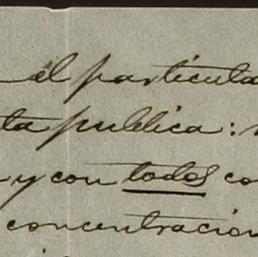 el particula
ta publica:
y con todos co
concentracion